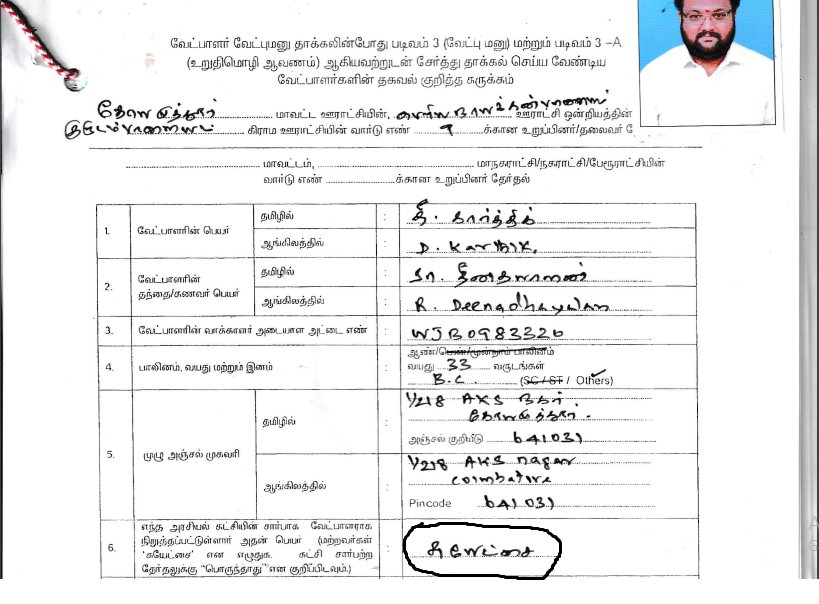 வேட்பாளர் வேட்புமனு தாக்கலின்போது படிவம் 3 (வேட்பு மனு) மற்றும் படிவம் 3 –A
(உறுதிமொழி ஆவணம்) ஆகியவற்றுடன் சேர்த்து தாக்கல் செய்ய வேண்டிய
வேட்பாளர்களின் தகவல் குறித்த சுருக்கம்
கோயமுத்தூர் மாவட்ட ஊராட்சியின், பெரியநாயக்கன்பாளையம் ஊராட்சி ஒன்றியத்தின்
கிராம ஊராட்சியின் வார்டு எண் 9 க்கான உறுப்பினர்/தலைவர்
மாவட்டம், மாநகராட்சி/நகராட்சி/பேரூராட்சியின்
வார்டு எண் க்கான உறுப்பினர் தேர்தல்
1. வேட்பாளரின் பெயர் தமிழில் : தீ. கார்த்திக்
ஆங்கிலத்தில் : D. Karthik.
2. வேட்பாளரின் தந்தை/கணவர் பெயர் தமிழில் : ரா. தீனதயாளன்
ஆங்கிலத்தில் : R. Deenadhayalan
3. வேட்பாளரின் வாக்காளர் அடையாள அட்டை எண் : WJB0983320
4. பாலினம், வயது மற்றும் இனம் : ஆண்/பெண்/மூன்றாம் பாலினம்
வயது 33 வருடங்கள்
B.C. (SC / ST / Others)
5. முழு அஞ்சல் முகவரி தமிழில் : 1/218 AKS நகர்
கோயமுத்தூர்.
அஞ்சல் குறியீடு 641031
ஆங்கிலத்தில் : 1/218 AKS nagar
Coimbatore
Pincode 641 031
6. எந்த அரசியல் கட்சியின் சார்பாக வேட்பாளராக
நிறுத்தப்பட்டுள்ளார் அதன் பெயர் (மற்றவர்கள்
'சுயேட்சை' என எழுதுக. கட்சி சார்பற்ற
தேர்தலுக்கு "பொருந்தாது" என குறிப்பிடவும்.) : சுயேட்சை